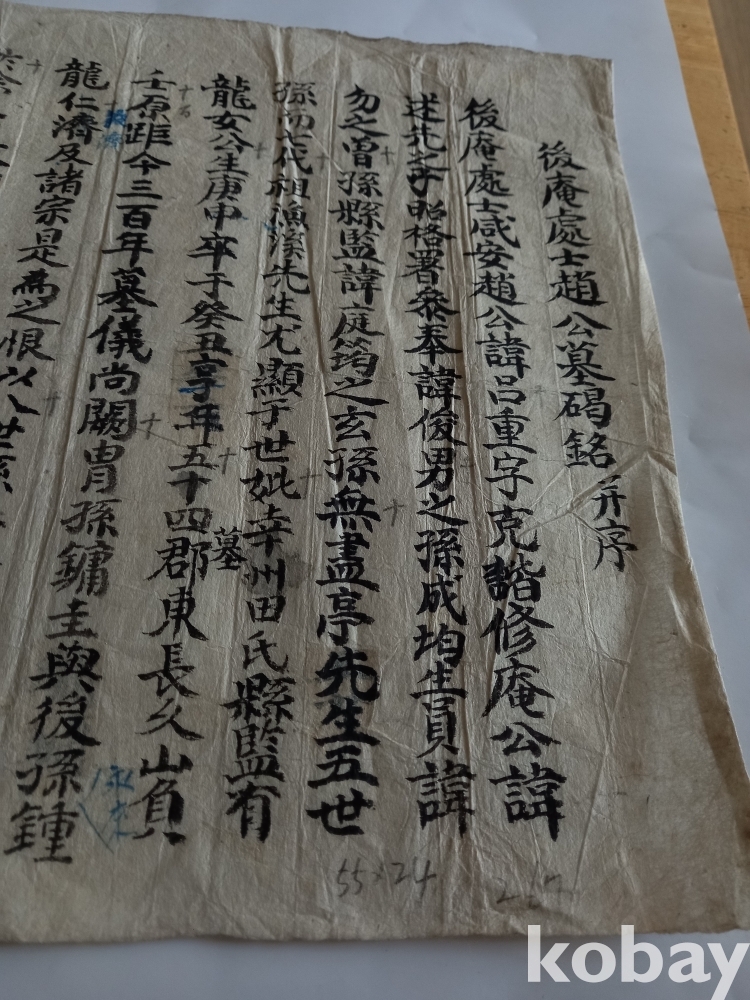 後庵處士趙公墓碣銘 并序
後庵處士咸安趙公諱呂重字克諧修庵公諱
述先之子昭格署參奉諱俊男之孫成均生員諱
勿之曾孫縣監諱庭筠之玄孫無盡亭先生五世
孫而七代祖漁溪先生尤顯于世妣幸州田氏縣監有
龍女公生庚申卒于癸丑享年五十四墓郡東長久山負
壬原距今三百年墓儀尚闕胄孫鏞圭與後孫鍾
龍仁濟及諸宗是為之恨以八世孫
55×24
kobay